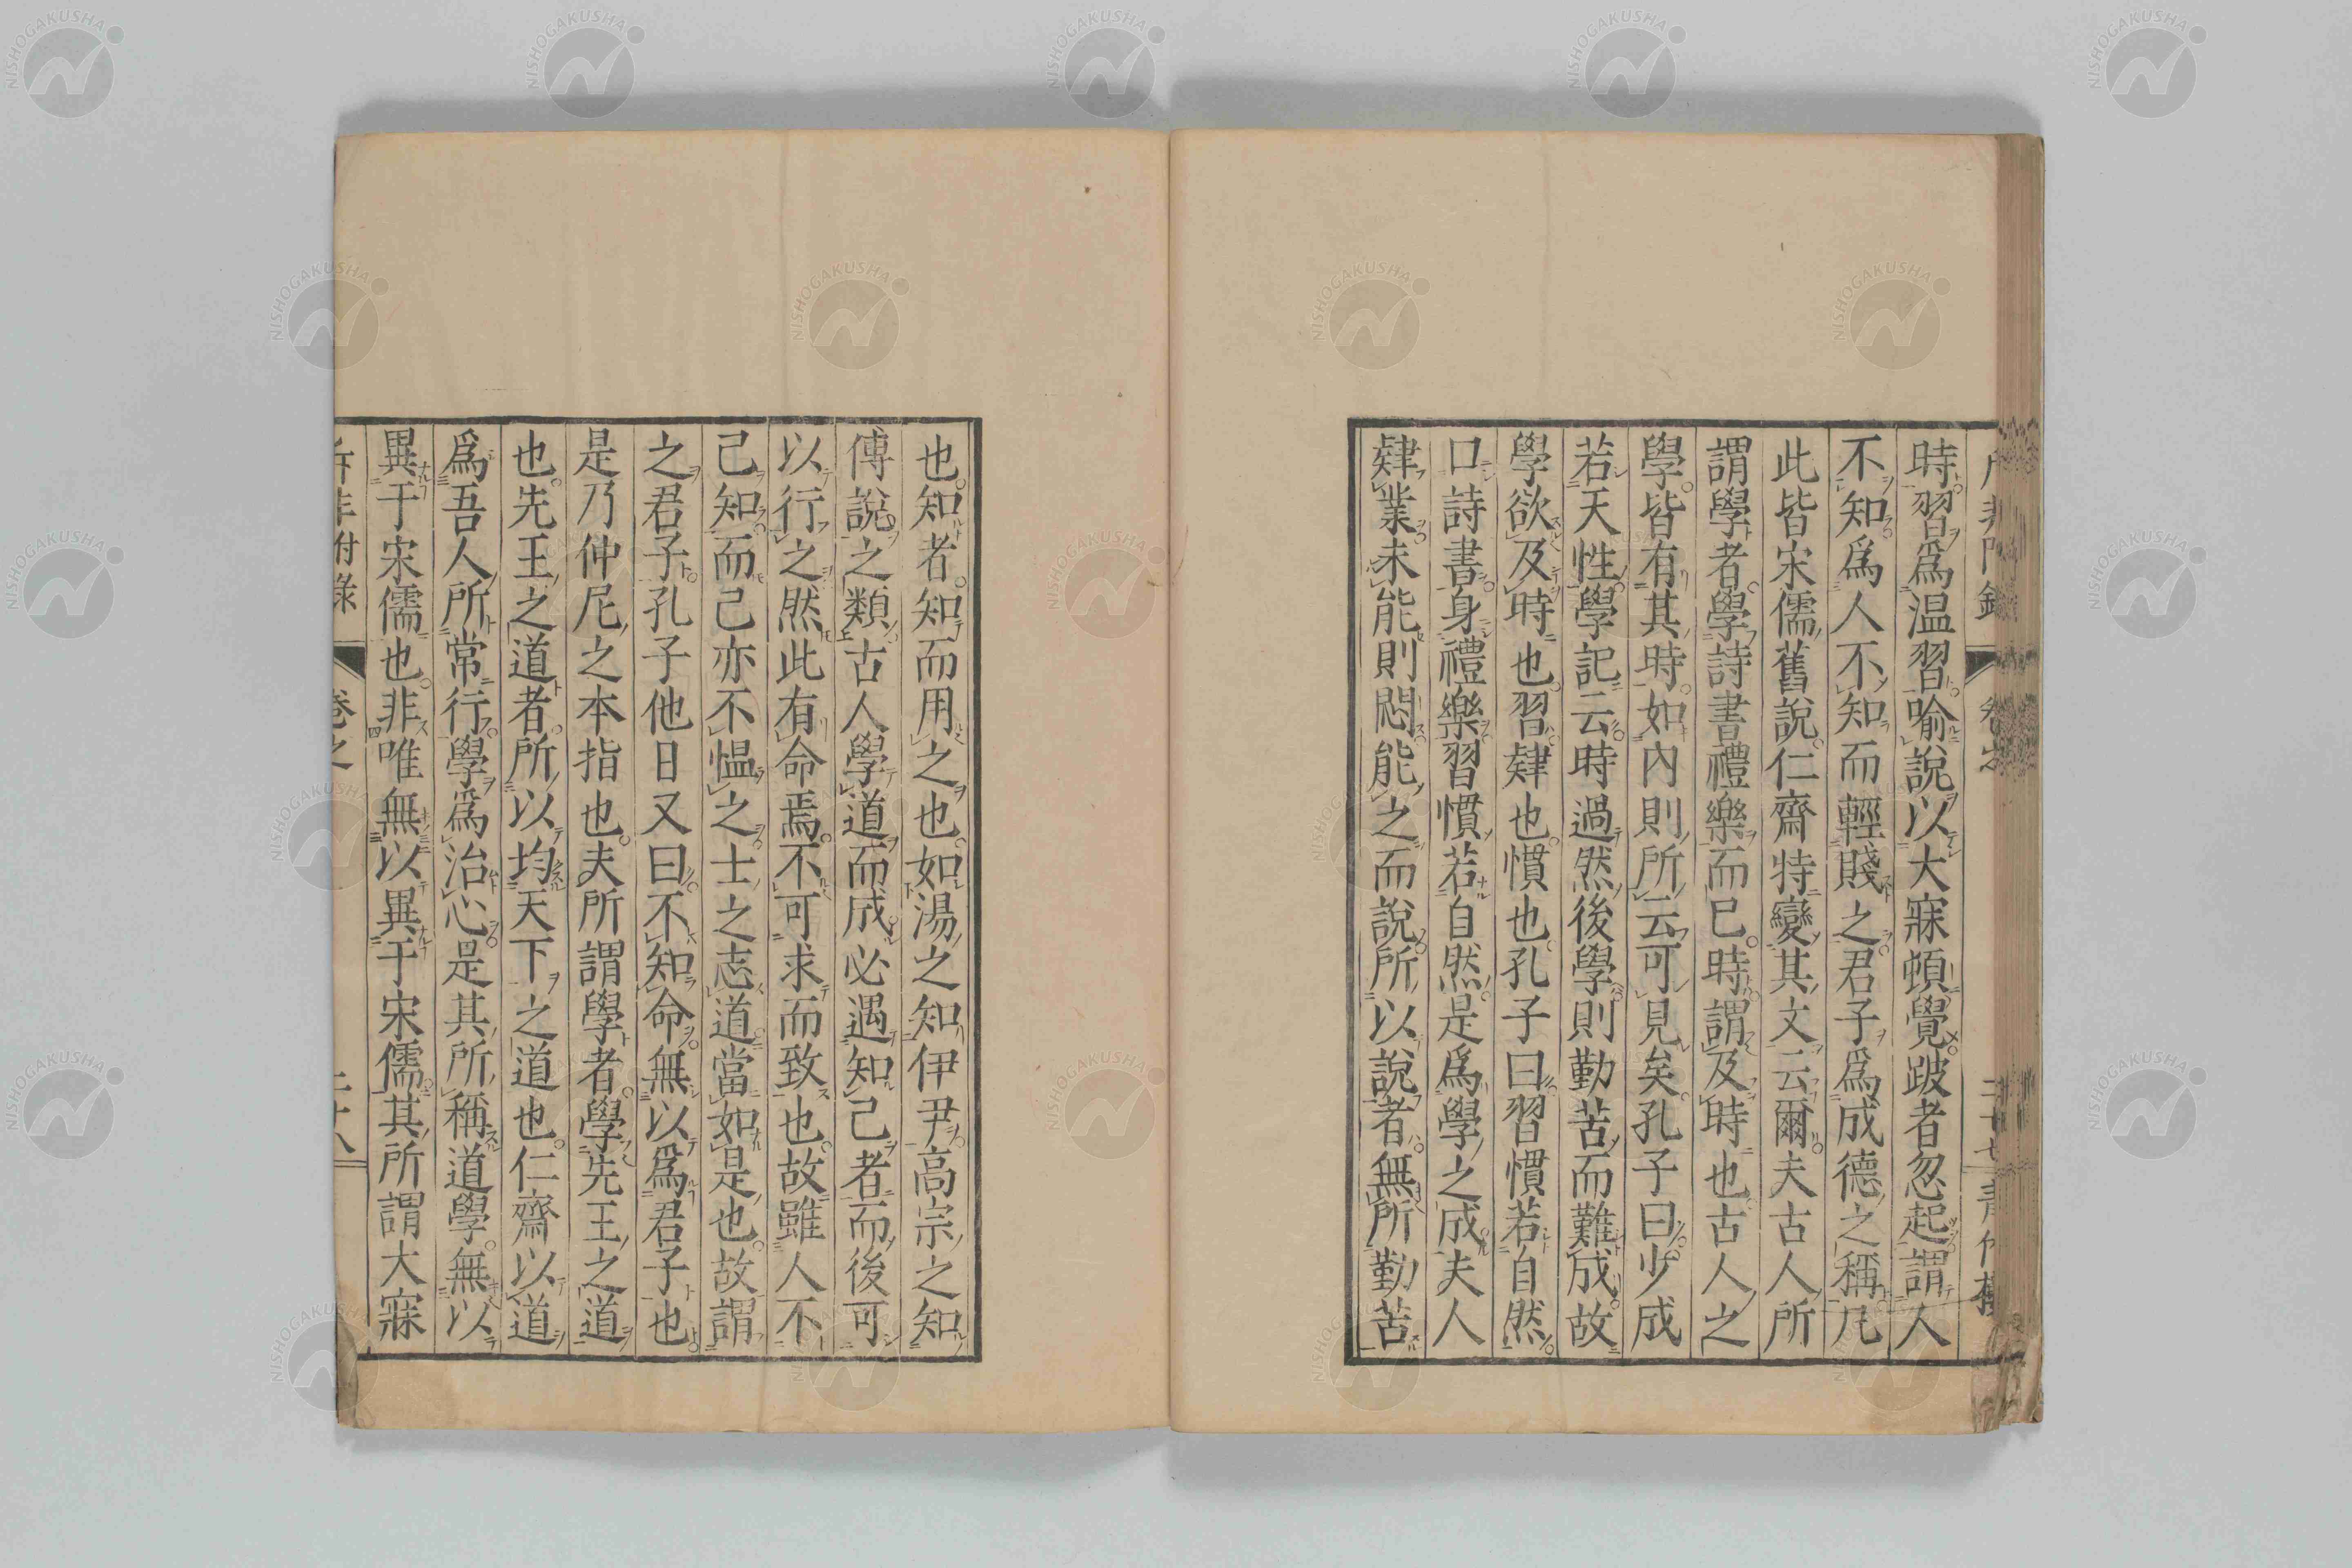 時習爲温習喩說以大寐頓覺跛者忽起謂人
不知爲人不知而輕賤之君子爲成德之稱凡
此皆宋儒舊說仁齋特變其文云爾夫古人所
謂學者學詩書禮樂而已時謂及時也古人之
學皆有其時如內則所云可見矣孔子曰少成
若天性學記云時過然後學則勤苦而難成故
學欲及時也習肄也慣也孔子曰習慣若自然
口詩書身禮樂習慣若自然是爲學之成夫人
肄業未能則悶能之而說所以說者無所勤苦
也知者知而用之也如湯之知伊尹高宗之知
傅說之類古人學道而成必遇知己者而後可
以行之然此有命焉不可求而致也故雖人不
己知而己亦不慍之士之志道當如是也故謂
之君子孔子他日又曰不知命無以爲君子也
是乃仲尼之本指也夫所謂學者學先王之道
也先王之道者所以均天下之道也仁齋以道
爲吾人所常行學爲治心是其所稱道學無以
異于宋儒也非唯無以異于宋儒其所謂大寐
斥非附錄 卷之 二十八
NISHOGAKUSHA